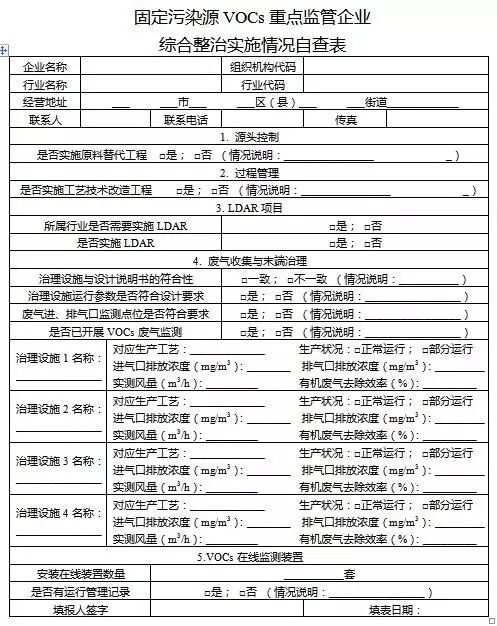 固定污染源 VOCs 重点监管企业
综合整治实施情况自查表
企业名称 组织机构代码
行业名称 行业代码
经营地址 ___市___ ___区（县）___ ___街道____________
联系人 联系电话 传真
1. 源头控制
是否实施原料替代工程 □是； □否 （情况说明：________________ _）
2. 过程管理
是否实施工艺技术改造工程 □是； □否 （情况说明：________________ _）
3. LDAR 项目
所属行业是否需要实施 LDAR □是； □否
是否实施 LDAR □是； □否
4. 废气收集与末端治理
治理设施与设计说明书的符合性 □一致； □不一致 （情况说明：___________）
治理设施运行参数是否符合设计要求 □是； □否 （情况说明：________________）
废气进、排气口监测点位是否符合要求 □是； □否 （情况说明：________________）
是否已开展 VOCs 废气监测 □是； □否 （情况说明：________________）
治理设施 1 名称：______________
对应生产工艺：_____________ 生产状况：□正常运行； □部分运行
进气口排放浓度（mg/m³）：_________ 排气口排放浓度（mg/m³）：_________
实测风量（m³/h）：_________ 有机废气去除效率（%）：_________
治理设施 2 名称：______________
对应生产工艺：_____________ 生产状况：□正常运行； □部分运行
进气口排放浓度（mg/m³）：_________ 排气口排放浓度（mg/m³）：_________
实测风量（m³/h）：_________ 有机废气去除效率（%）：_________
治理设施 3 名称：______________
对应生产工艺：_____________ 生产状况：□正常运行； □部分运行
进气口排放浓度（mg/m³）：_________ 排气口排放浓度（mg/m³）：_________
实测风量（m³/h）：_________ 有机废气去除效率（%）：_________
治理设施 4 名称：______________
对应生产工艺：_____________ 生产状况：□正常运行； □部分运行
进气口排放浓度（mg/m³）：_________ 排气口排放浓度（mg/m³）：_________
实测风量（m³/h）：_________ 有机废气去除效率（%）：_________
5.VOCs 在线监测装置
安装在线装置数量 __________套
是否有运行管理记录 □是； □否 （情况说明：________________）
填报人签字 填表日期：